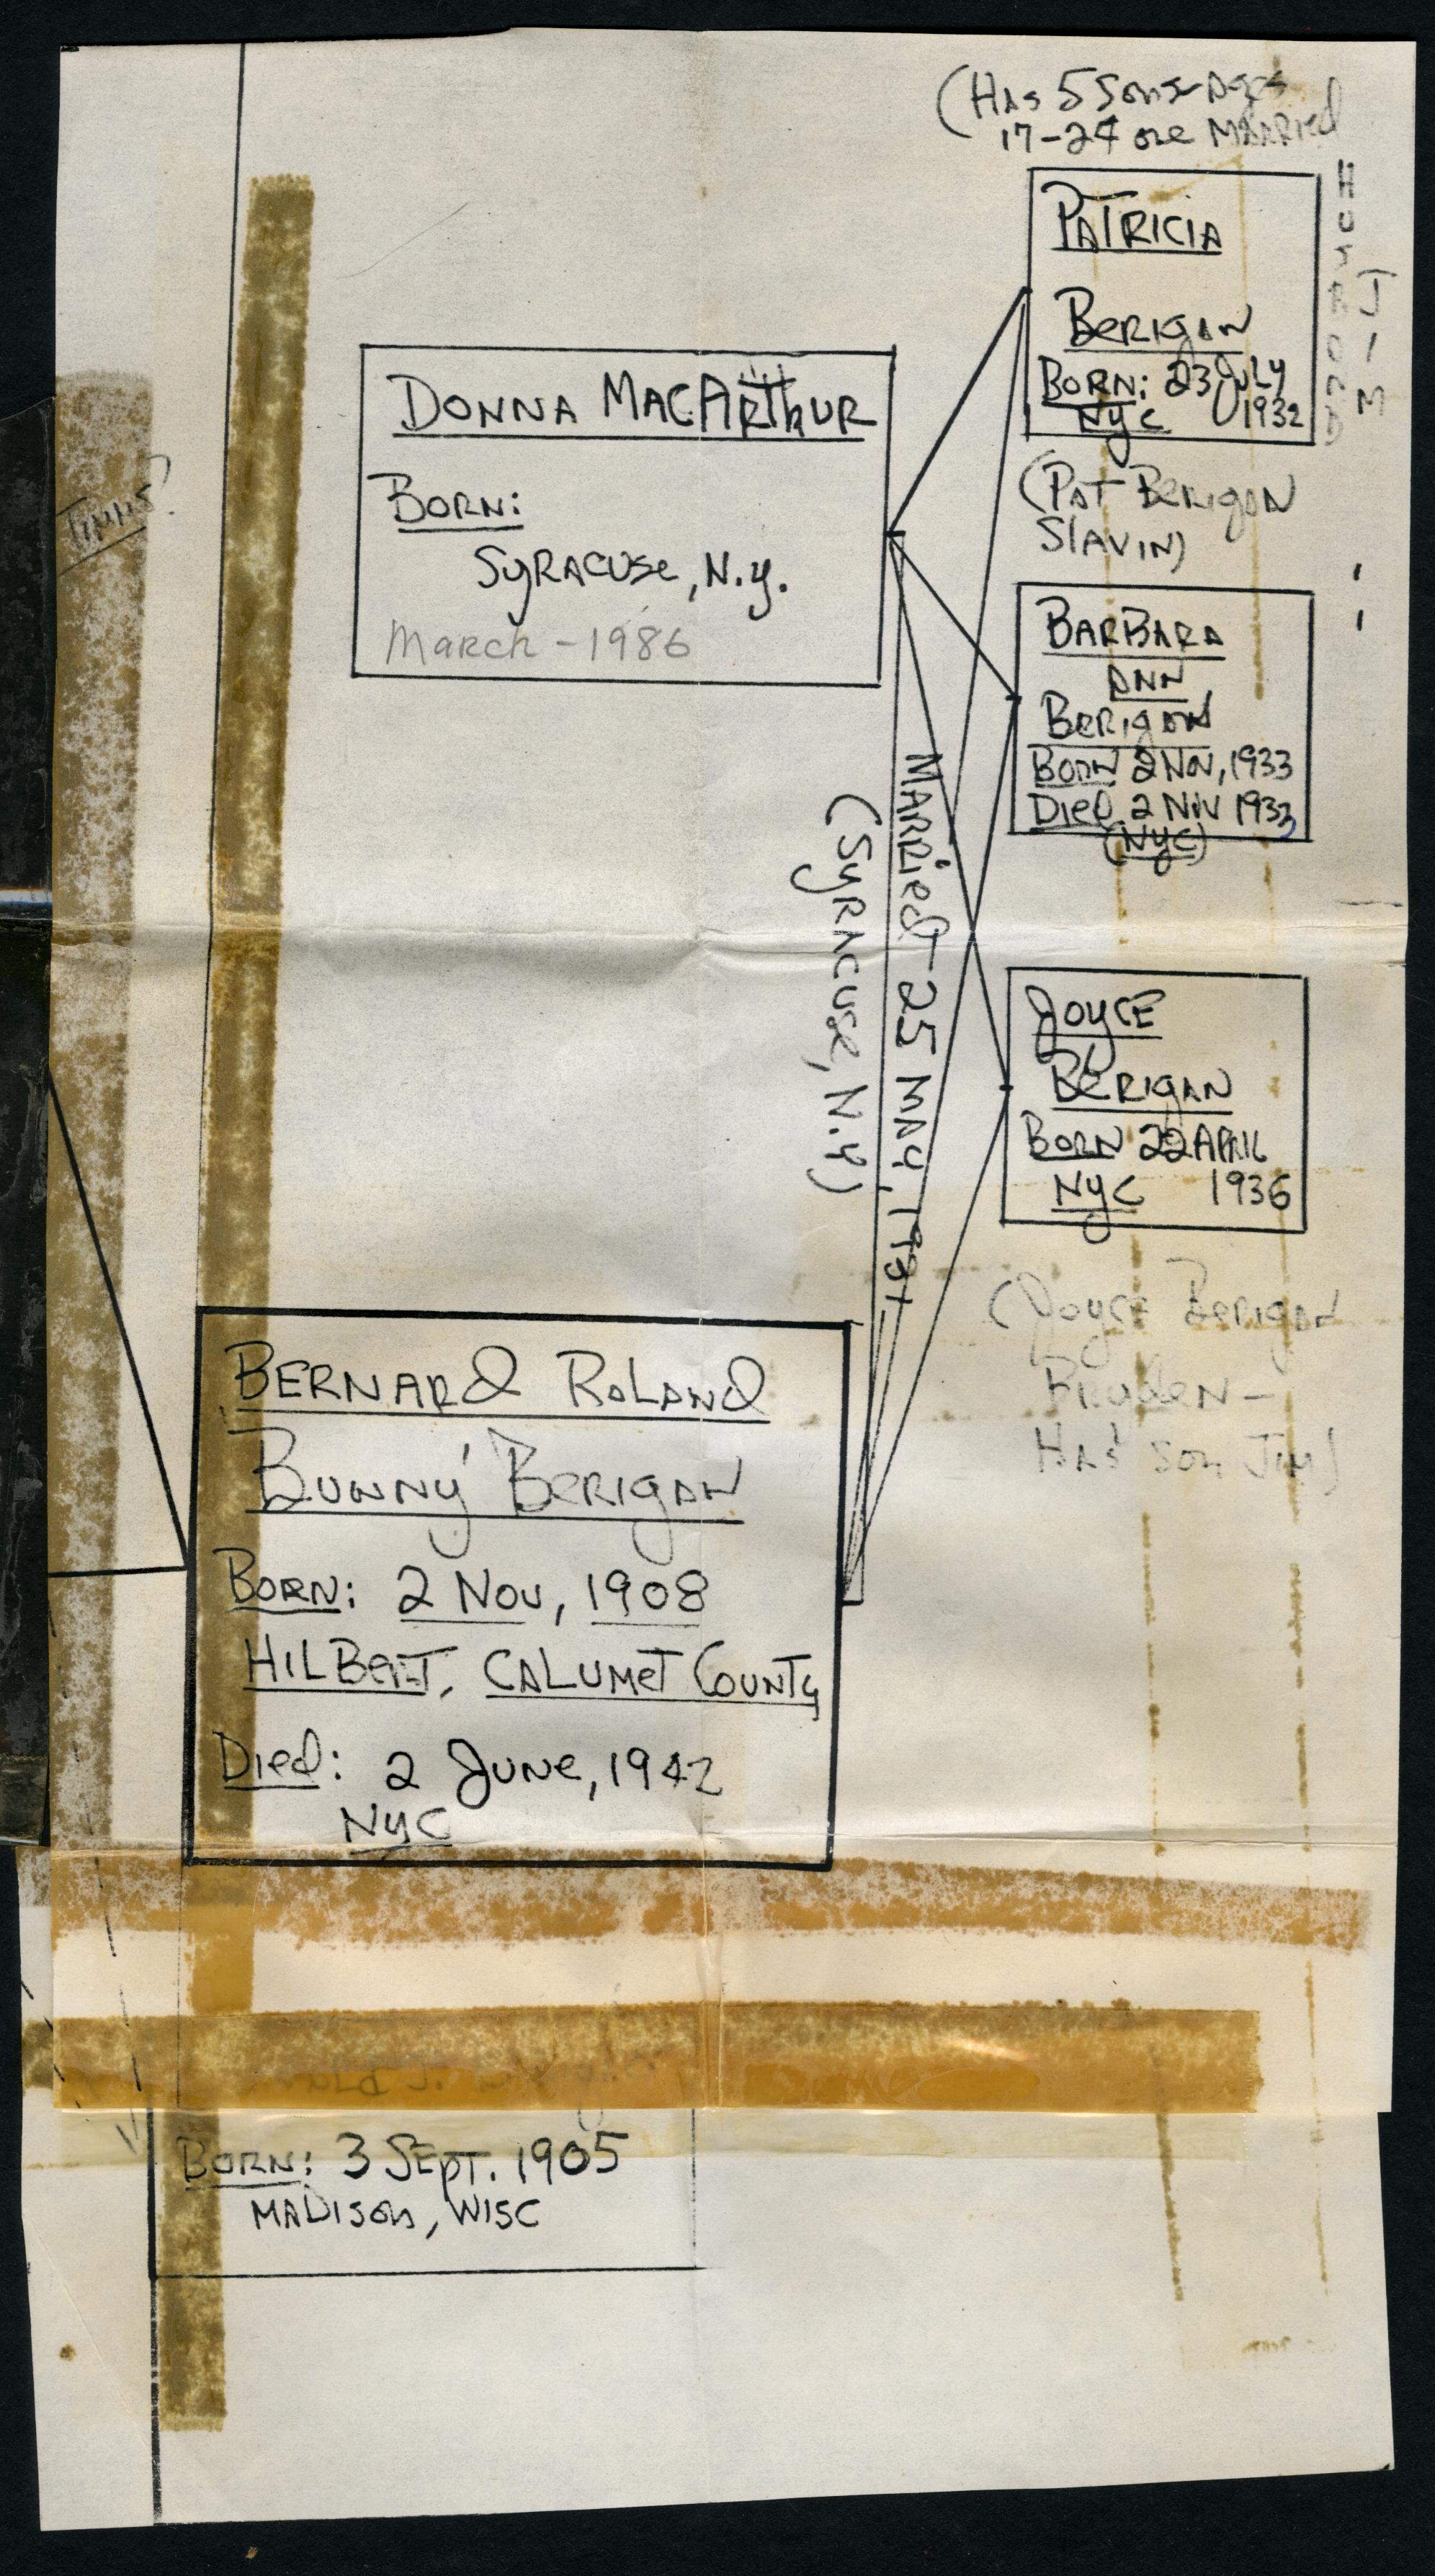 (HAS 5 SONS-AGES
17-24 one MARRIED
PATRICIA
BERIGAN
BORN: 23 JULY
NYC 1932
HUSBAND
JIM
(PAT BERIGAN
SLAVIN)
DONNA MACARTHUR
BORN:
SYRACUSE, N.Y.
March - 1986
BARBARA
ANN
BERIGAN
BORN 2 NOV, 1933
Died 2 NOV 1933
(NYC)
MARRIED - 25 MAY, 1931
(SYRACUSE, N.Y)
JOYCE
BERIGAN
BORN 22 APRIL
NYC 1936
(JOYCE BERIGAN
BRYDEN -
HAS SON JIM)
BERNARD ROLAND
'BUNNY' BERIGAN
BORN: 2 NOV, 1908
HILBERT, CALUMET COUNTY
Died: 2 JUNE, 1942
NYC
BORN: 3 SEPT. 1905
MADISON, WISC